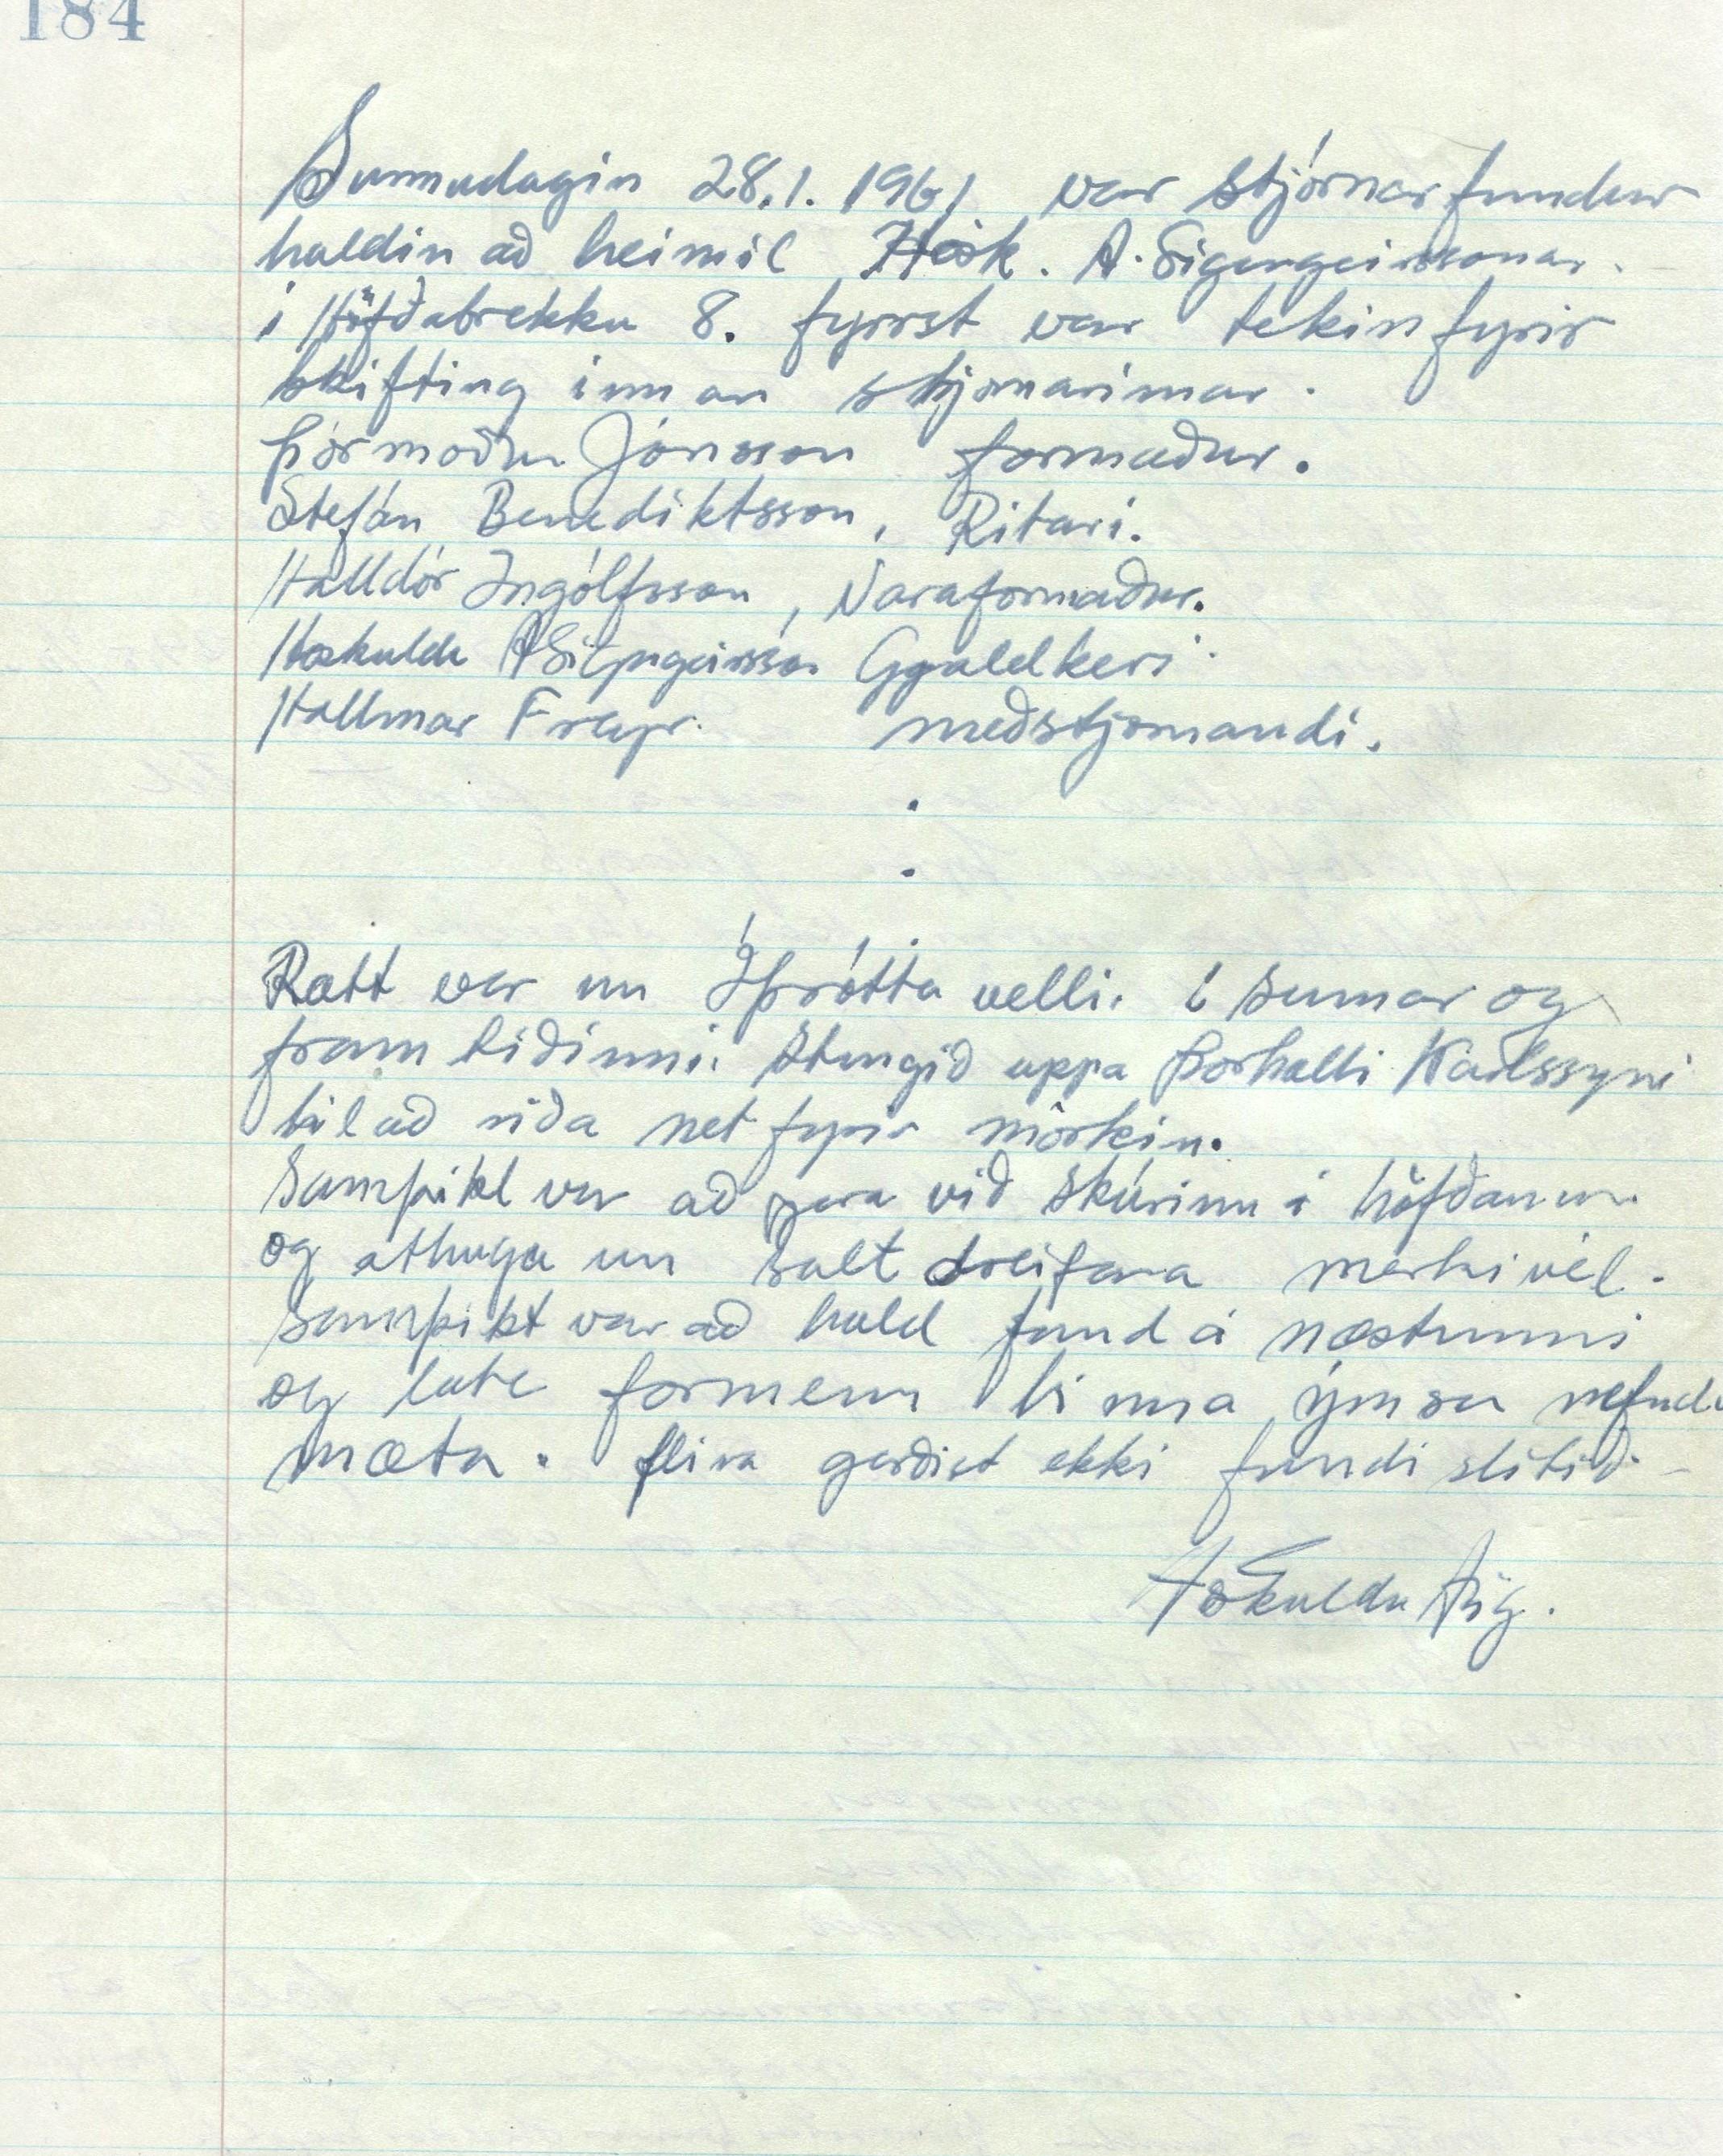 184
Sunnudagin 28.1. 1961 var stjórnarfundur
haldin að heimil Hösk. A. Sigurgeirssonar.
í Höfðabrekku 8. fyrst var tekin fyrir
skifting innan stjornarinnar.
Þórmoður Jónsson formaður.
Stefán Benediktsson, Ritari.
Halldór Ingólfsson, Varaformaður.
Hoskuldu A Sigurgeirsson Gjaldkeri
Hallmar Freyr. meðstjornandi.
Rætt var um Íþrótta velli. í sumar og
framtiðinni. Stungið uppa Þorhalli Karlssyni
til að riða net fyrir mörkin.
Samþikt var að gera við skúrinn i höfðanum.
og athuga um salt dreifara merkivél.
Samþikt var að hald fund á næstunni
og lata formenn hinna ýmsu nefnda
mæta. fleira gerðist ekki fundi slitið
Höskuldu Sig.